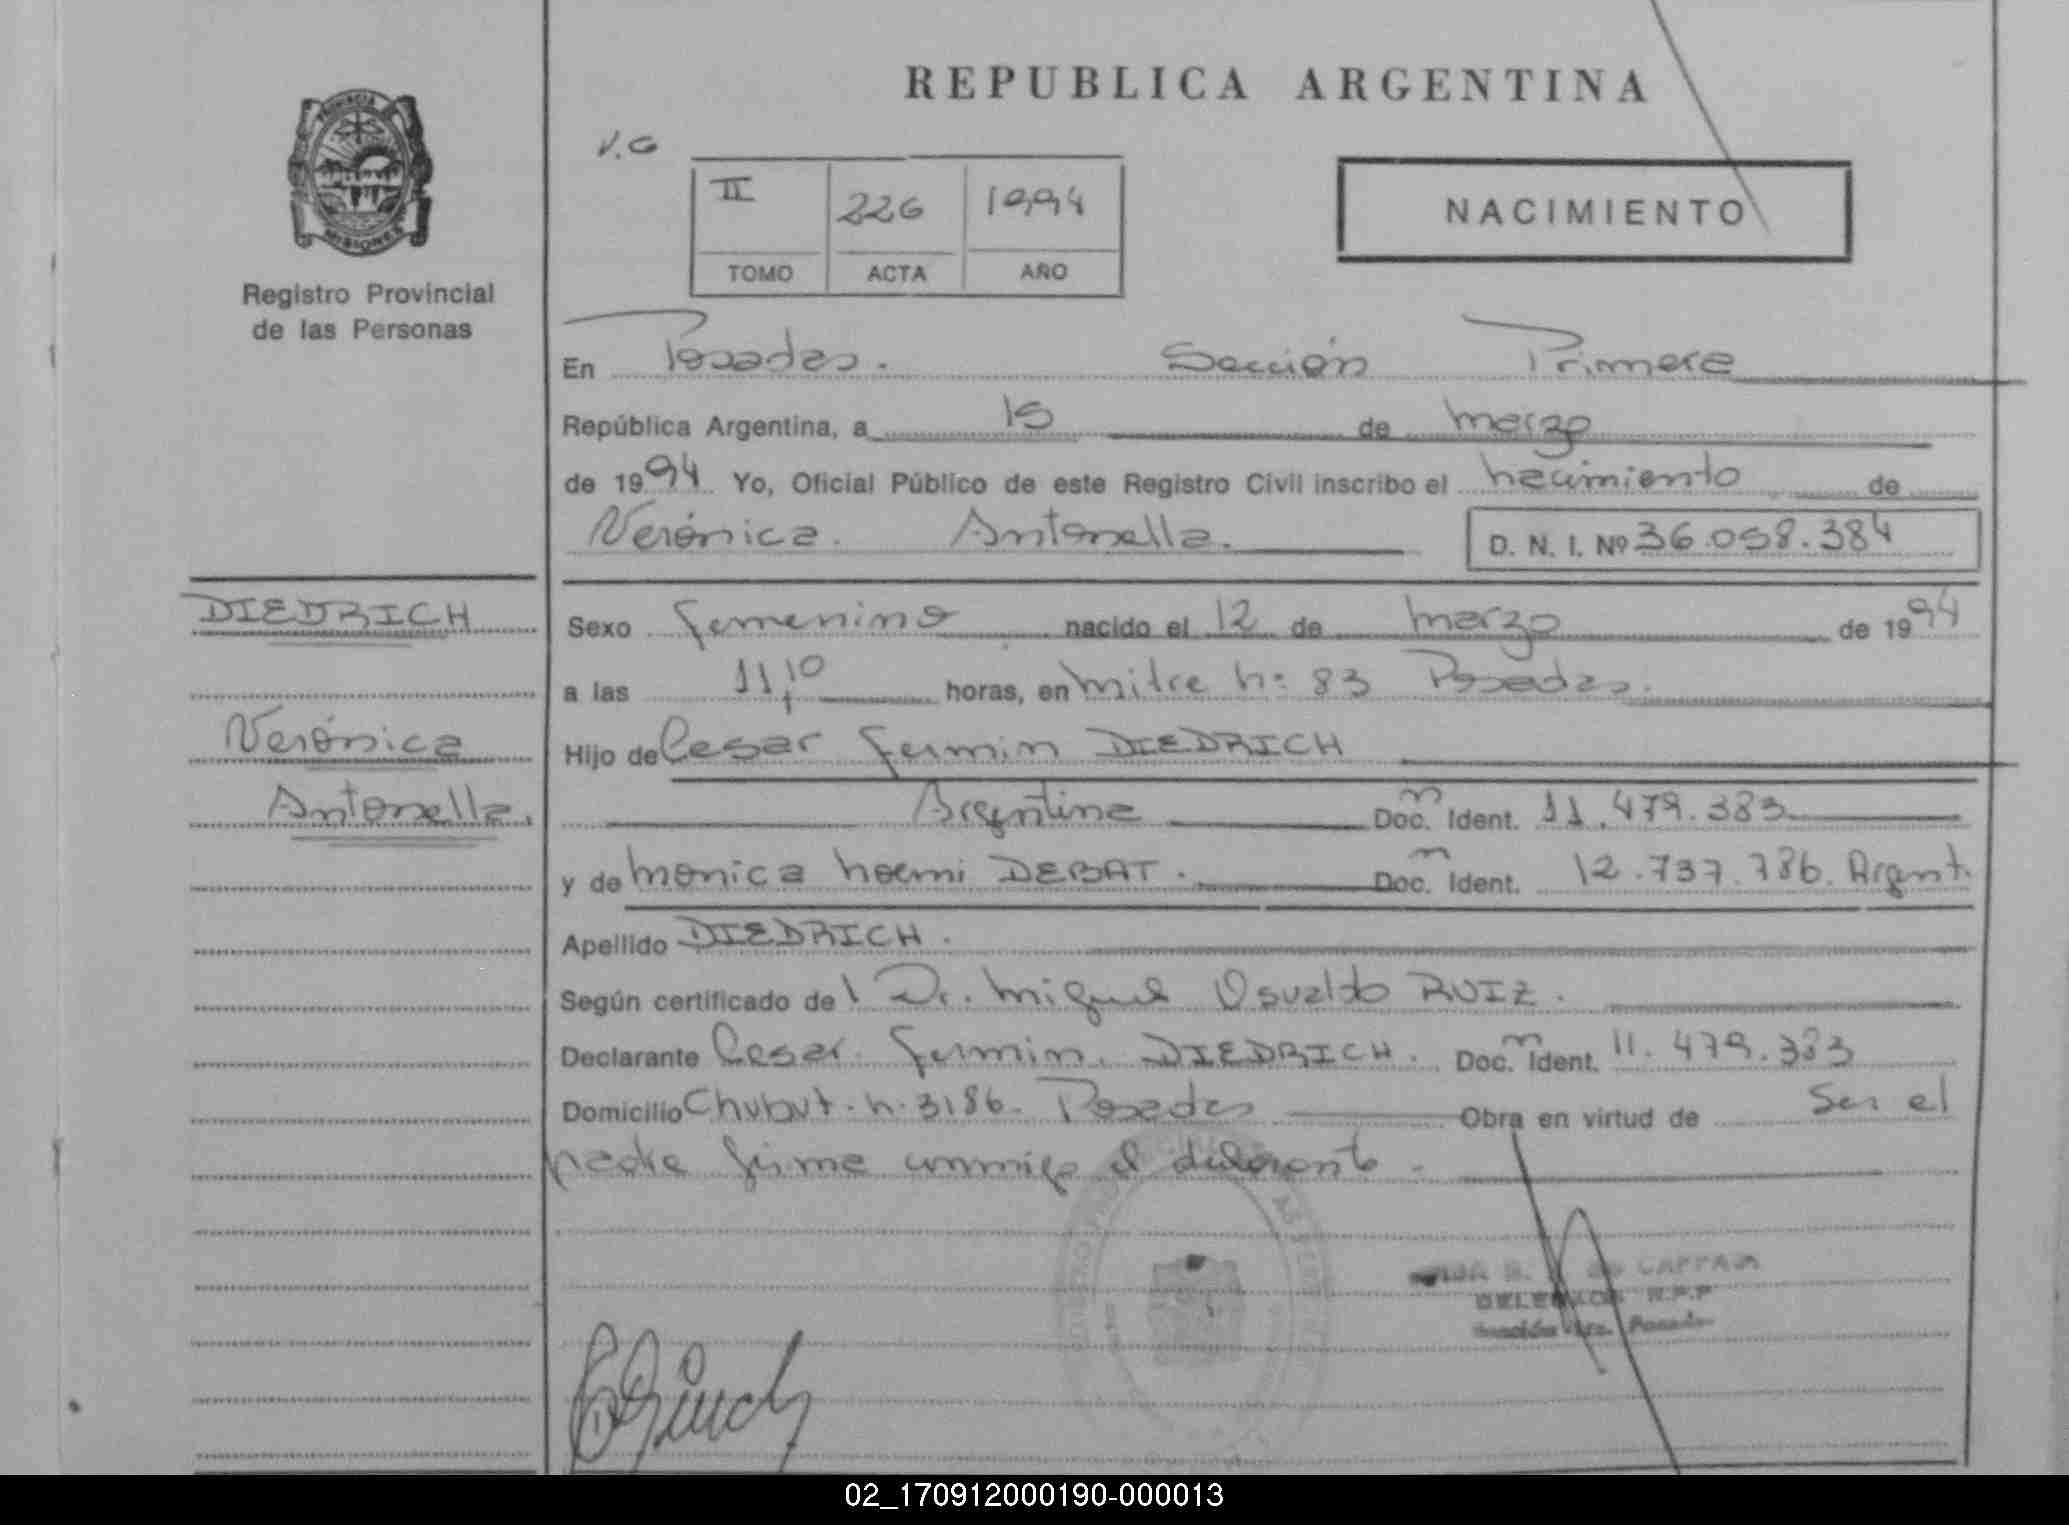 REPUBLICA ARGENTINA
V.G
II 226 1994
TOMO ACTA AÑO
NACIMIENTO
PROVINCIA
MISIONES
Registro Provincial
de las Personas
En Posadas. Sección Primera
República Argentina, a 15 de marzo
de 1994 Yo, Oficial Público de este Registro Civil inscribo el nacimiento de
Verónica. Antonella. D. N. I. Nº 36.058.384
DIEDRICH
Verónica
Antonella.
Sexo femenino nacido el 12 de marzo de 1994
a las 11,10 horas, en mitre n: 83 Posadas.
Hijo de Cesar fermin DIEDRICH
Argentina Doc. Ident. 11.479.383
y de monica noemi DEBAT. Doc. Ident. 12.737.786. Argent.
Apellido DIEDRICH.
Según certificado de l Dr. Miguel Osvaldo RUIZ.
Declarante Cesar. fermin. DIEDRICH. Doc. Ident. 11.479.383
Domicilio Chubut. n. 3186. Posadas Obra en virtud de Ser el
padre firma conmigo el
de CAPPA
DELEGADA R.P.P
02_170912000190-000013